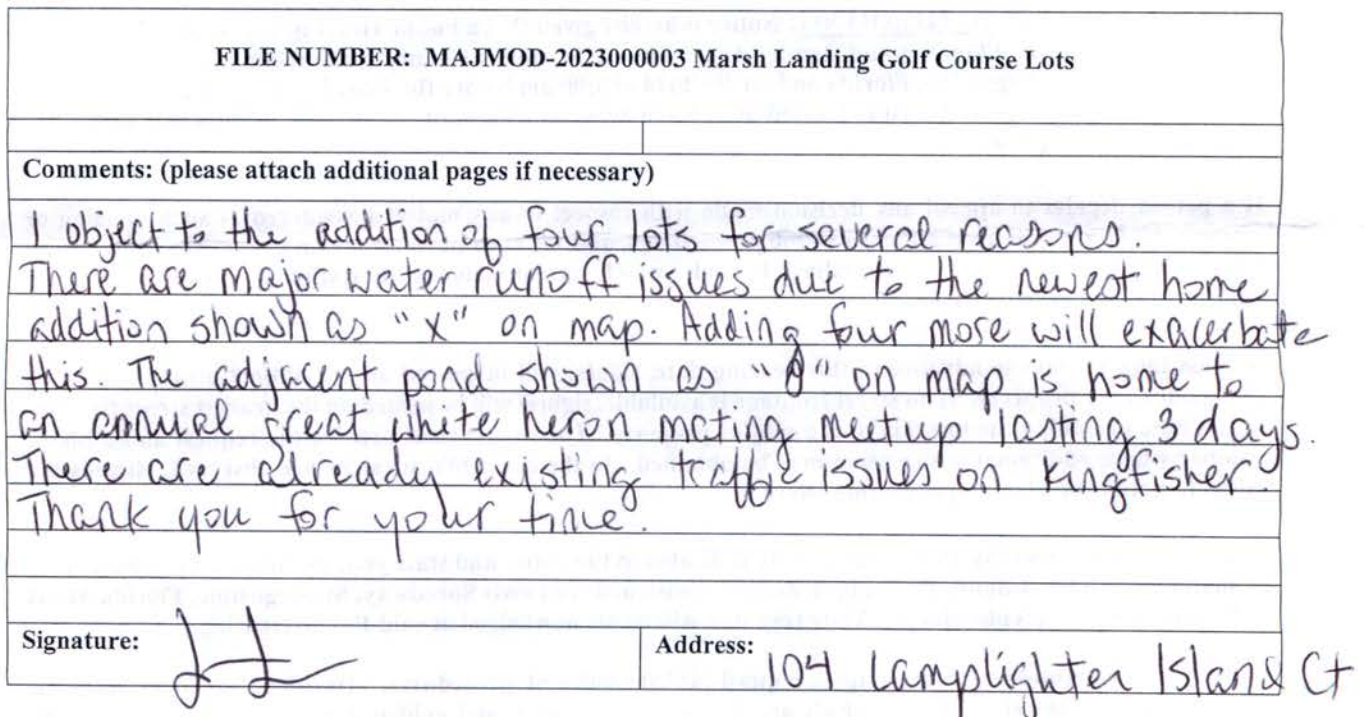 FILE NUMBER: MAJMOD-2023000003 Marsh Landing Golf Course Lots
Comments: (please attach additional pages if necessary)
I object to the addition of four lots for several reasons.
There are major water runoff issues due to the newest home
addition shown as "X" on map. Adding four more will exacerbate
this. The adjacent pond shown as on map is home to
an annual great white heron mating meetup lasting 3 days.
There are already existing traffic issues on Kingfisher
Thank you for your time.
Signature:
Address: 104 Lamplighter Island Ct